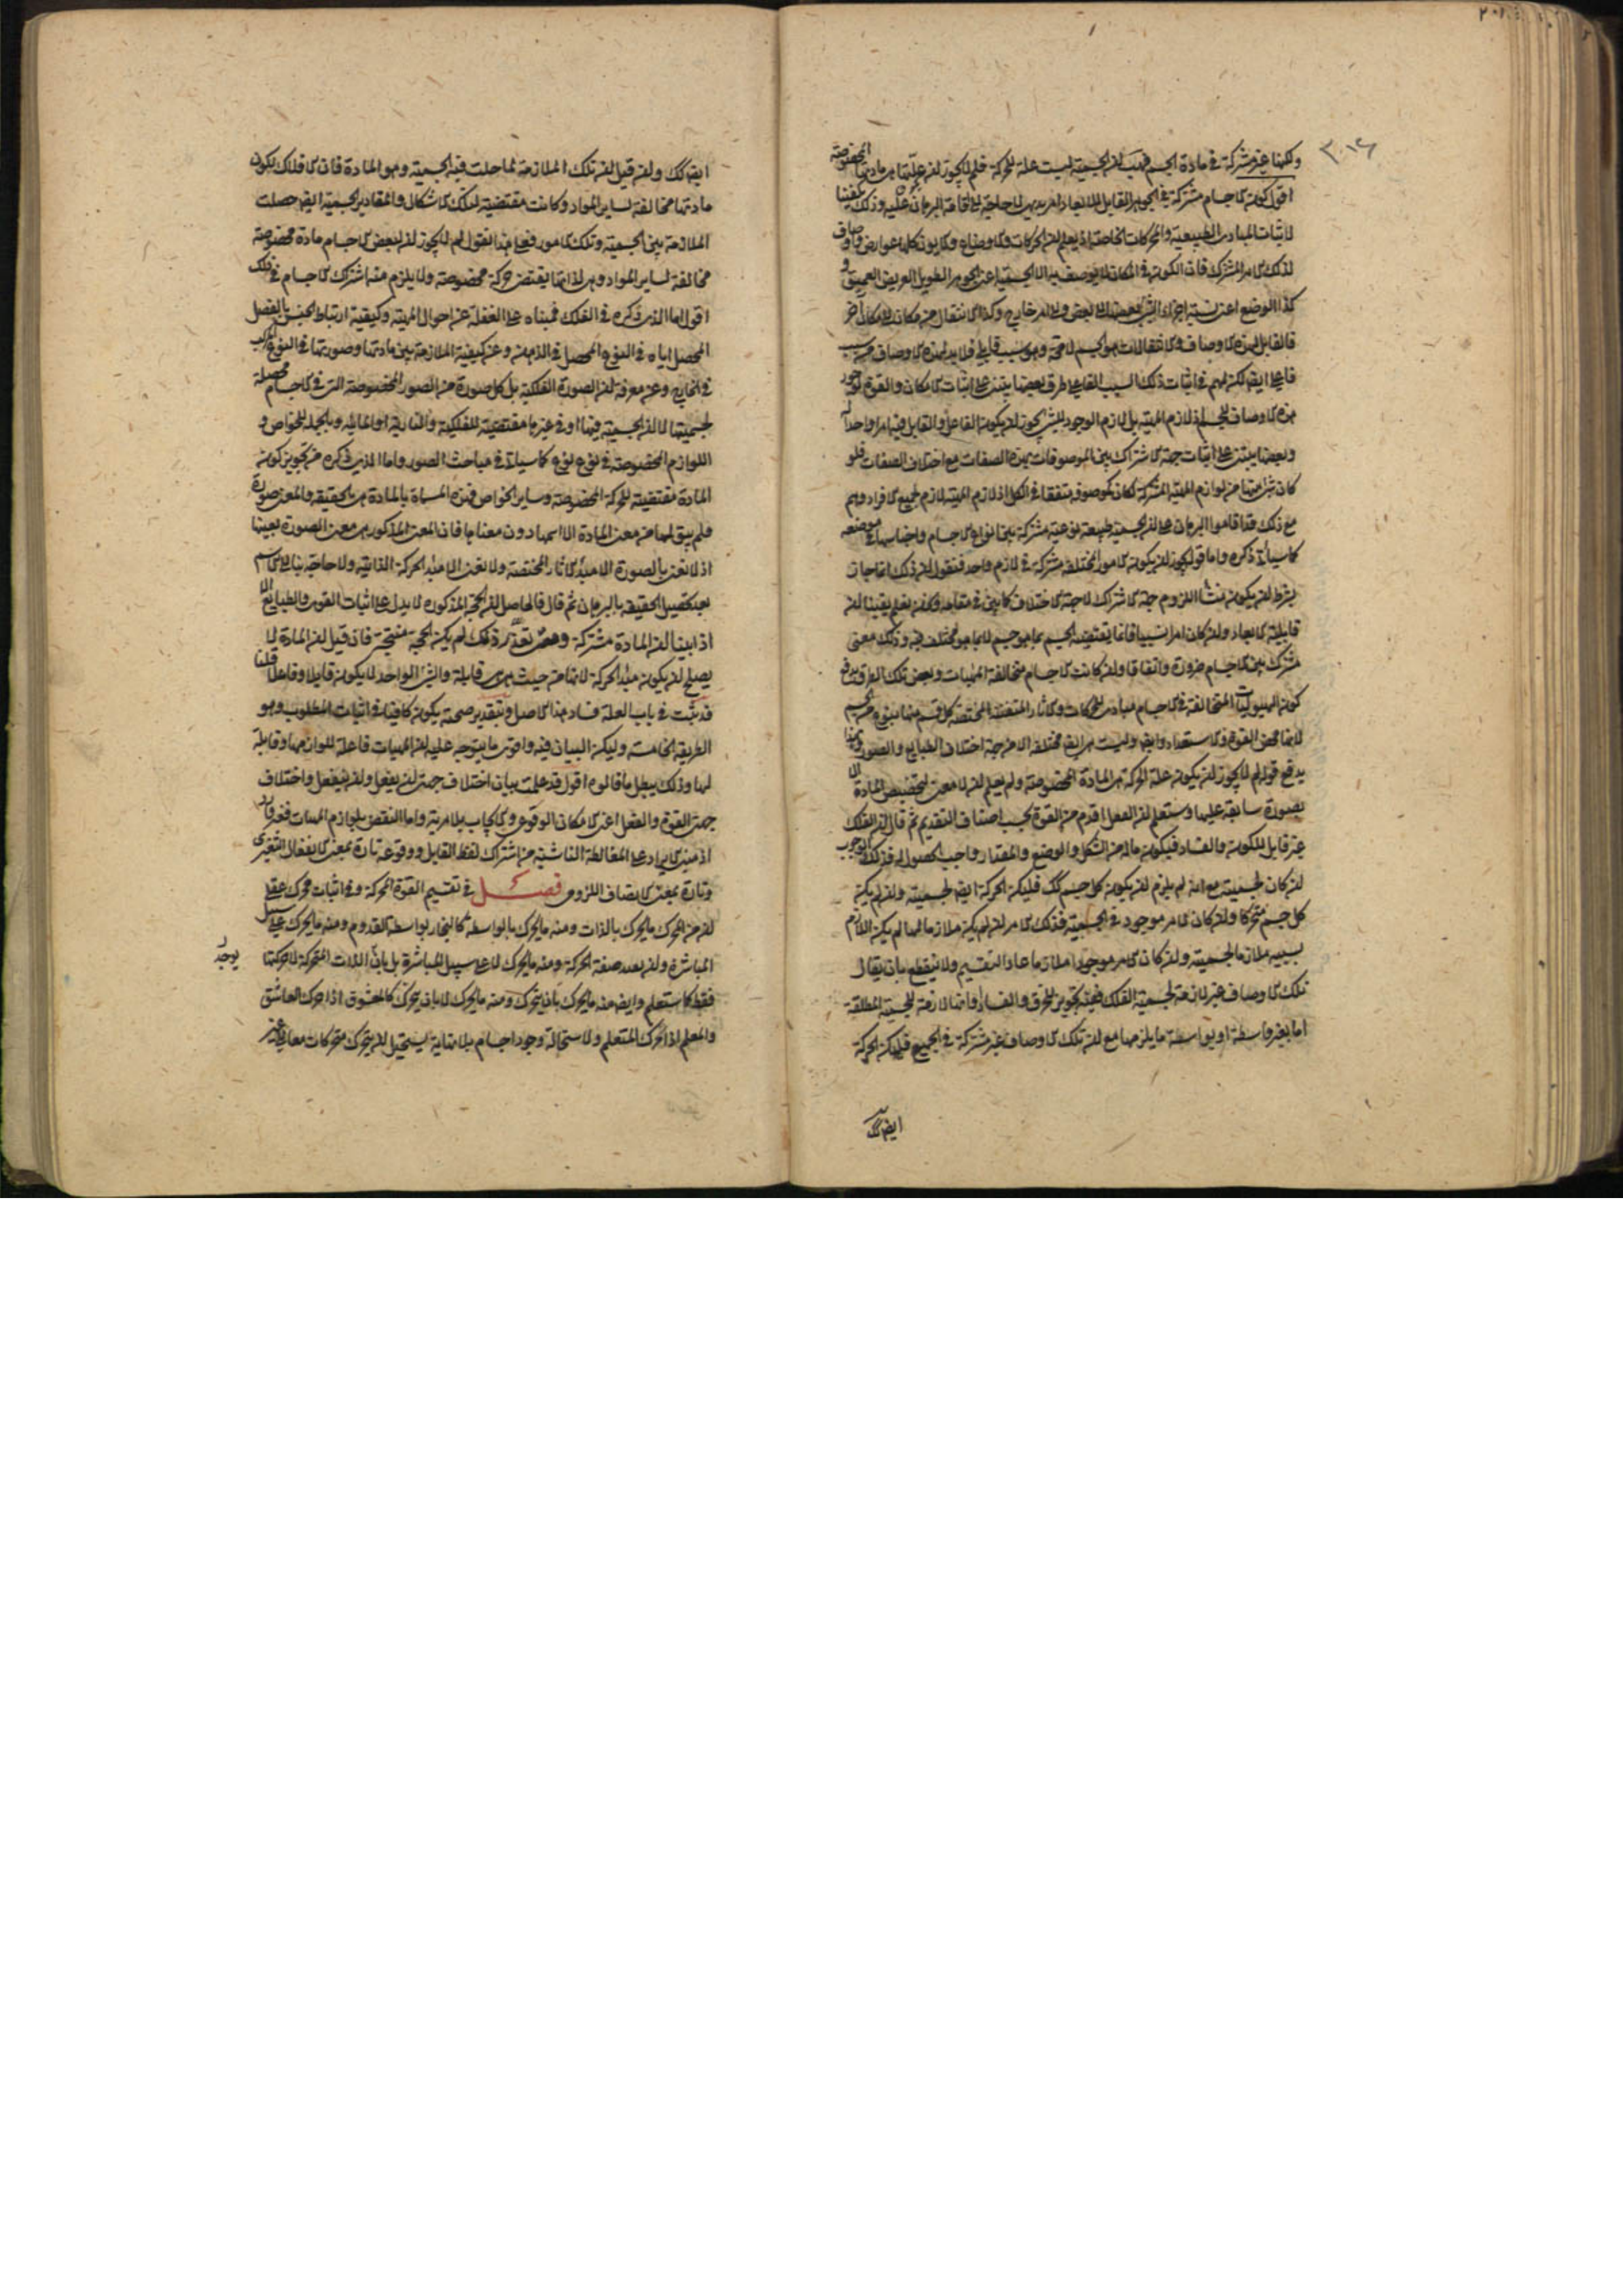 ولكنها غير مشتركة في مادة الجسم فهب ان الجسمية ليست علة للحركة فلم لا يجوز ان علتها هي مادتها المخصوصة
اقول كون الاجسام مشتركة في الجوهر القابل للابعاد امر بديهي لا حاجة الى اقامة البرهان عليه وذلك يكفينا
لاثبات المبادي الطبيعية والمحركات الخاصة اذ يعلم ان الحركات والاوضاع والايون كلها عوارض واوصاف
لذلك الامر المشترك فان الكون في المكان لا يوصف به الا الجسمية اعني الجوهر الطويل العريض العميق و
كذا الوضع اعني نسبة اجزاء الشيء بعضها الى بعض والى امر خارج وكذا الانتقال من مكان الى مكان آخر
فالقابل لهذه الاوصاف والانتقالات هو الجسم لا محة وهو سبب قابلي فلا بد لهذه الاوصاف من سبب
فاعلي ايض لكنهم في اثبات ذلك السبب الفاعلي طرق بعضها يبتنى على اثبات الامكان والقوة لوجود
هذه الاوصاف للجسم اذ لازم المهية بل لازم الوجود للشيء يجوز ان يكون الفاعل والقابل فيه امرا واحدا
وبعضها يبتنى على اثبات جهة الاشتراك بين الموصوفات بهذه الصفات مع اختلاف الصفات فلو
كان شيء منها من لوازم المهية المشتركة لكان موصوفه متفقا في الكل اذ لازم المهية لازم لجميع الافراد وهم
مع ذلك قد اقاموا البرهان على ان الجسمية طبيعة نوعية مشتركة بين انواع الاجسام واجناسها في موضعه
كما سيأتي ذكره واما قوله يجوز ان يكون الامور المختلفة مشتركة في لازم واحد فنقول ان ذلك انما جاز
بشرط ان يكون منشأ اللزوم جهة الاشتراك لا جهة الاختلاف كما بين في مقامه وكفى نعلم يقينا ان
قابلية الابعاد وان كان امرا نسبيا فانما يقتضيه الجسم بما هو جسم لا بما هو مختلف فيه وذلك معنى
مشترك بين الاجسام ضرورة واتفاقا وان كانت الاجسام متخالفة المهيات وبعض تلك الطرق يدفع
كون الهيوليات المتخالفة في الاجسام مبادي للحركات والاثار المتفننة المختصة كل قسم منها بنوع من الجسم
لانها محض القوة والاستعداد وايض وليست هي ايض مختلفة الا من جهة اختلاف الطبايع والصور وبهذا
يدفع قولهم لا يجوز ان يكون علة الحركة هي المادة المخصوصة ولم يعلم ان لا معنى لتخصيص المادة الا
بصورة سابقة عليها وستعلم ان الفعل اقدم من القوة بحسب اصناف التقديم ثم قال ان الفلك
غير قابل للكون والفساد فيكون ماله من الشكل والوضع والمقدار واجب الحصول له فذلك الوجوب
ان كان لجسميته مع انه لم يلزم ان يكون كل جسم كك فليكن الحركة ايض لجسميته وان لم يكن
كل جسم متحركا وان كان الامر موجود في الجسمية فذلك الامر ان لم يكن ملازما لها لم يكن اللازم
بسببه ملازما لجسميته وان كان الامر موجودا ملازما عاد التقسيم ولا ينقطع بان يقال
تلك الاوصاف غير لازمة لجسمية الفلك ففيه تجويز للخرق والفساد وانها لازمة للجسمية المطلقة
اما بغير واسطة او بواسطة ما يلزمها مع ان تلك الاوصاف غير مشتركة في الجميع فليكن الحركة
ايض كك
ايض كك ولئن قيل ان تلك الملازمة لما حلت فيه الجسمية وهو المادة فان الافلاك لكون
مادتها مخالفة لساير المواد وكانت مقتضية لتلك الاشكال والمقادير لجسمية ايض حصلت
الملازمة بين الجسمية وتلك الامور فعلى هذا نقول لم لا يجوز ان لبعض الاجسام مادة مخصوصة
مخالفة لساير المواد وهي لذاتها يقتضي حركة مخصوصة ولا يلزم منه اشتراك الاجسام في ذلك
اقول اما الذي ذكره في الفلك فمبناه على الغفلة عن احوال المهية وكيفية ارتباط الجنس بالفصل
المحصل اياه في النوع المحصل في الذهن وعن كيفية الملازمة بين مادتها وصورتها في النوع المركب
في الخارج وعن معرفة ان الصورة الفلكية بل كل صورة من الصور المخصوصة التي في الاجسام محصلة
لجسميتها لا ان الجسمية فيها او في غيرها مقتضية للفلكية والنارية او المائية وبالجملة للخواص و
اللوازم المخصوصة في نوع نوع كما سيأتي في مباحث الصور واما الذي ذكره من تجويز كون
المادة مقتضية للحركة المخصوصة وساير الخواص فهذه المسماة بالمادة هي بالحقيقة والمعنى صورة
فلم يبق لها من معنى المادة الا اسمها دون معناها فان المعنى المذكور هو معنى الصورة بعينها
اذ لا نعني بالصورة الا مبدأ الاثار المختصة ولا نعني الا مبدأ الحركة الذاتية ولا حاجة بنا الى الاسم
بعد تحصيل الحقيقة بالبرهان ثم قال فالحاصل ان الحجة المذكورة لا يدل على اثبات القوى والطبايع الا
اذا بينا ان المادة مشتركة ومتى تعذر ذلك لم يكن الحجة منتجة فان قيل ان المادة لا
يصلح ان يكون مبدأ الحركة لانها من حيث هي هي قابلة والشيء الواحد لا يكون قابلا وفاعلا قلنا
قد بينت في باب العلة فساد هذا الاصل وبتقدير صحته يكون كافيا في اثبات المطلوب وهو
الطريقة الخامسة وليكن البيان فيه واقوى ما يتوجه عليه ان المهيات فاعلة للوازمها وقابلة
لها وذلك يبطل ما قالوه اقول قد علمت بيان اختلاف جهتي ان يفعل وان ينفعل واختلاف
جهتي القوة والفعل اعني الامكان الوقوعي والايجاب بلا مرية واما النقض بلوازم المهيات فغير وارد
اذ مبنى الايراد على المغالطة الناشية من اشتراك لفظ القابل ووقوعه تارة بمعنى الانفعال التغيري
وتارة بمعنى الاتصاف اللزومي فصل في تقسيم القوة المحركة وفي اثبات محرك عقلي
ان من المحرك ما يحرك بالذات ومنه ما يحرك بالواسطة كالنجار بواسطة القدوم ومنه ما يحرك على سبيل
المباشرة وان يعد صفة الحركة ومنه ما يحرك لا على سبيل المباشرة بل بان الذات المتحركة لا حركتها
يوجد
فقط كما ستعلم وايض منه ما يحرك بان يتحرك ومنه ما يحرك لا بان يتحرك كالمعشوق اذا حرك العاشق
والمعلم اذا حرك المتعلم ولاستحالة وجود اجسام بلا نهاية يستحيل ان يتحرك متحركات معا الى غير